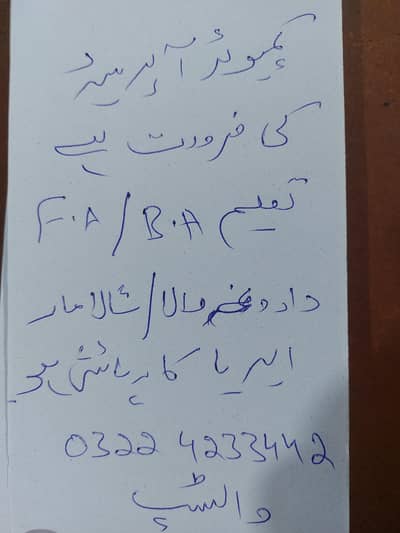 کمپیوٹر آپریٹر
کی ضرورت ہے
تعلیم F.A/B.A
داروغہ والا/شالامار
ایریا کا رہائشی ہو۔
0322 4233442
واٹسپ